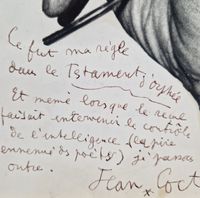 Ce fut ma règle
dans le Testament d'orphée
Et même lorsque le recul
faisait intervenir le contrôle
de l'intelligence (la pire
ennemie des poètes) j'ai passé
outre.
Jean Coct